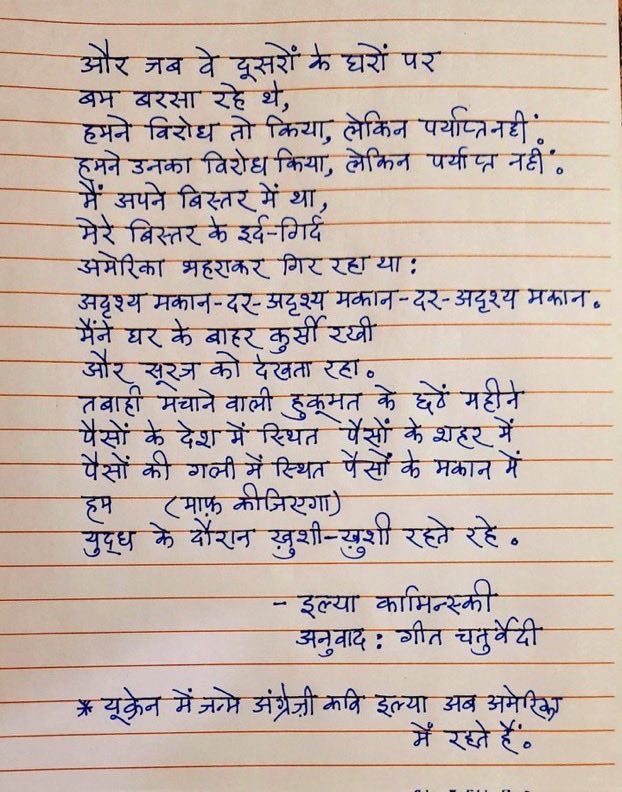 और जब वे दूसरों के घरों पर
बम बरसा रहे थे,
हमने विरोध तो किया, लेकिन पर्याप्त नहीं.
हमने उनका विरोध किया, लेकिन पर्याप्त नहीं.
मैं अपने बिस्तर में था,
मेरे बिस्तर के इर्द-गिर्द
अमेरिका भहराकर गिर रहा था :
अदृश्य मकान-दर-अदृश्य मकान-दर-अदृश्य मकान.
मैंने घर के बाहर कुर्सी रखी
और सूरज को देखता रहा.
तबाही मचाने वाली हुकूमत के छठें महीने
पैसों के देश में स्थित पैसों के शहर में
पैसों की गली में स्थित पैसों के मकान में
हम (माफ़ कीजिएगा)
युद्ध के दौरान ख़ुशी-ख़ुशी रहते रहे.
- इल्या कामिन्स्की
अनुवाद : गीत चतुर्वेदी
* यूक्रेन में जन्मे अंग्रेज़ी कवि इल्या अब अमेरिका
में रहते हैं.